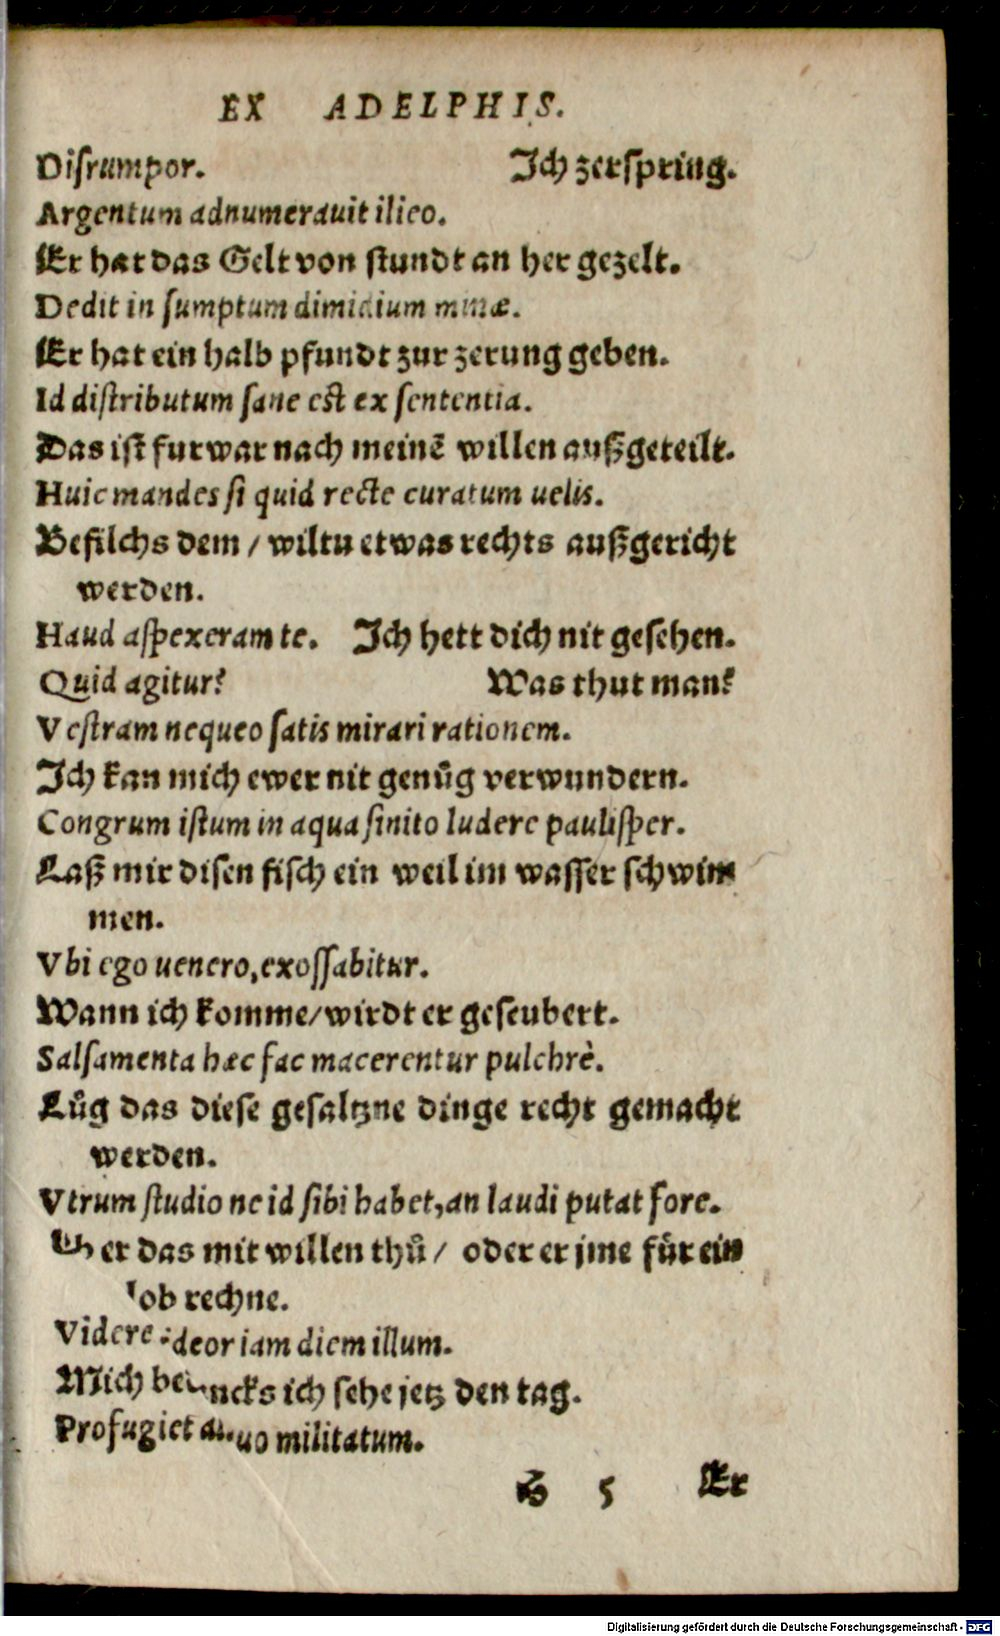 EX ADELPHIS.
Disrumpor. Ich zerspring.
Argentum adnumerauit ilico.
Er hat das Gelt von stundt an her gezelt.
Dedit in sumptum dimidium minæ.
Er hat ein halb pfundt zur zerung geben.
Id distributum sane est ex sententia.
Das ist furwar nach meinẽ willen außgeteilt.
Huic mandes si quid recte curatum uelis.
Befilchs dem / wiltu etwas rechts außgericht
werden.
Haud aspexeram te. Ich hett dich nit gesehen.
Quid agitur? Was thut man?
Vestram nequeo satis mirari rationem.
Ich kan mich ewer nit genůg verwundern.
Congrum istum in aqua sinito ludere paulisper.
Laß mir disen fisch ein weil im wasser schwim
men.
Vbi ego uenero, exossabitur.
Wann ich komme/wirdt er geseubert.
Salsamenta hæc fac macerentur pulchrè.
Lůg das diese gesaltzne dinge recht gemacht
werden.
Vtrum studio ne id sibi habet, an laudi putat fore.
er das mit willen thů / oder er jme für ein
lob rechne.
Videre deor iam diem illum.
Mich be ncks ich sehe jetz den tag.
Profugiet uo militatum.
5 Er
Digitalisierung gefördert durch die Deutsche Forschungsgemeinschaft - DFG